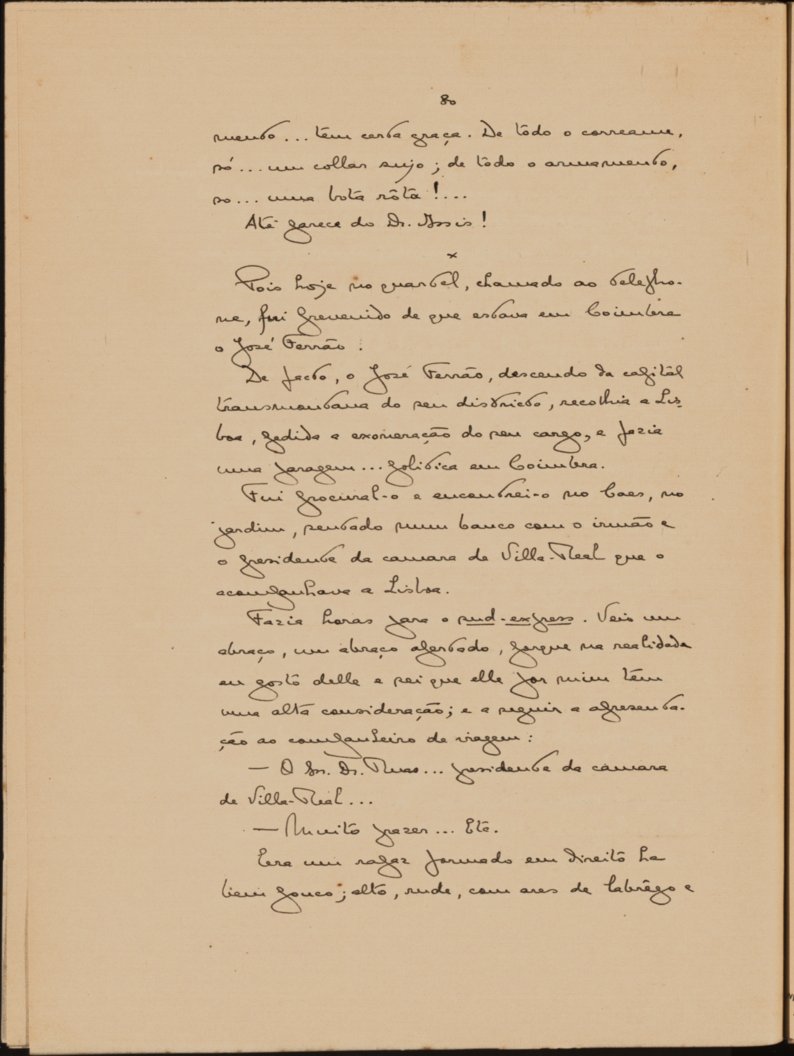 80
mento... têm certa graça. De tôdo o correame,
só... um collar sujo; de tôdo o armamento,
so... uma bota rôta!...
Até parece do Dr. Assis!
x
Pois hoje no quartel, chamado ao telepho-
ne, fui prevenido de que estava em Coimbra
o José Ferrão.
De facto, o José Ferrão, descendo da capitál
transmontana do seu districto, recolhia a Lis-
boa, pedida a exoneração do seu cargo, e fazia
uma paragem... politica em Coimbra.
Fui procural-o e encontrei-o no Caes, no
jardim, sentado num banco com o irmão e
o presidente da camara de Villa-Real que o
acompanhava a Lisboa.
Fazia horas para o sud-express. Veio um
abraço, um abraço apertado, porque na realidade
eu gosto delle e sei que elle por mim têm
uma alta consideração; e a seguir a apresenta-
ção ao companheiro de viagem:
— O Sr. Dr. ... presidente da camara
de Villa-Real...
— Muito prazer... Etc.
Era um rapaz formado em direito ha
bem pouco; alto, rude, com ares de labrêgo e